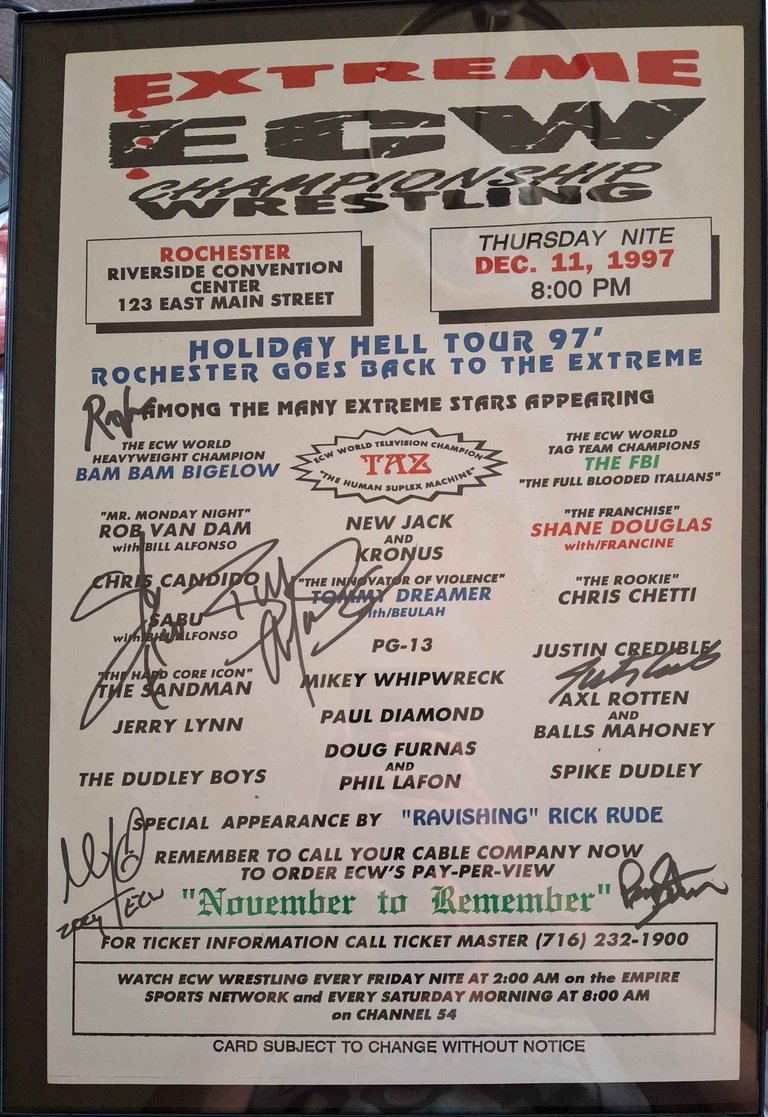 EXTREME
ECW
CHAMPIONSHIP
WRESTLING
ROCHESTER
RIVERSIDE CONVENTION
CENTER
123 EAST MAIN STREET
THURSDAY NITE
DEC. 11, 1997
8:00 PM
HOLIDAY HELL TOUR 97'
ROCHESTER GOES BACK TO THE EXTREME
AMONG THE MANY EXTREME STARS APPEARING
THE ECW WORLD
HEAVYWEIGHT CHAMPION
BAM BAM BIGELOW
ECW WORLD TELEVISION CHAMPION
TAZ
"THE HUMAN SUPLEX MACHINE"
THE ECW WORLD
TAG TEAM CHAMPIONS
THE FBI
"THE FULL BLOODED ITALIANS"
"MR. MONDAY NIGHT"
ROB VAN DAM
with BILL ALFONSO
NEW JACK
AND
KRONUS
"THE FRANCHISE"
SHANE DOUGLAS
with/FRANCINE
CHRIS CANDIDO
"THE INNOVATOR OF VIOLENCE"
TOMMY DREAMER
with/BEULAH
"THE ROOKIE"
CHRIS CHETTI
SABU
with BILL ALFONSO
PG-13
JUSTIN CREDIBLE
"THE HARD CORE ICON"
THE SANDMAN
MIKEY WHIPWRECK
AXL ROTTEN
AND
BALLS MAHONEY
JERRY LYNN
PAUL DIAMOND
THE DUDLEY BOYS
DOUG FURNAS
AND
PHIL LAFON
SPIKE DUDLEY
SPECIAL APPEARANCE BY "RAVISHING" RICK RUDE
REMEMBER TO CALL YOUR CABLE COMPANY NOW
TO ORDER ECW'S PAY-PER-VIEW
"November to Remember"
ECW
FOR TICKET INFORMATION CALL TICKET MASTER (716) 232-1900
WATCH ECW WRESTLING EVERY FRIDAY NITE AT 2:00 AM on the EMPIRE
SPORTS NETWORK and EVERY SATURDAY MORNING AT 8:00 AM
on CHANNEL 54
CARD SUBJECT TO CHANGE WITHOUT NOTICE